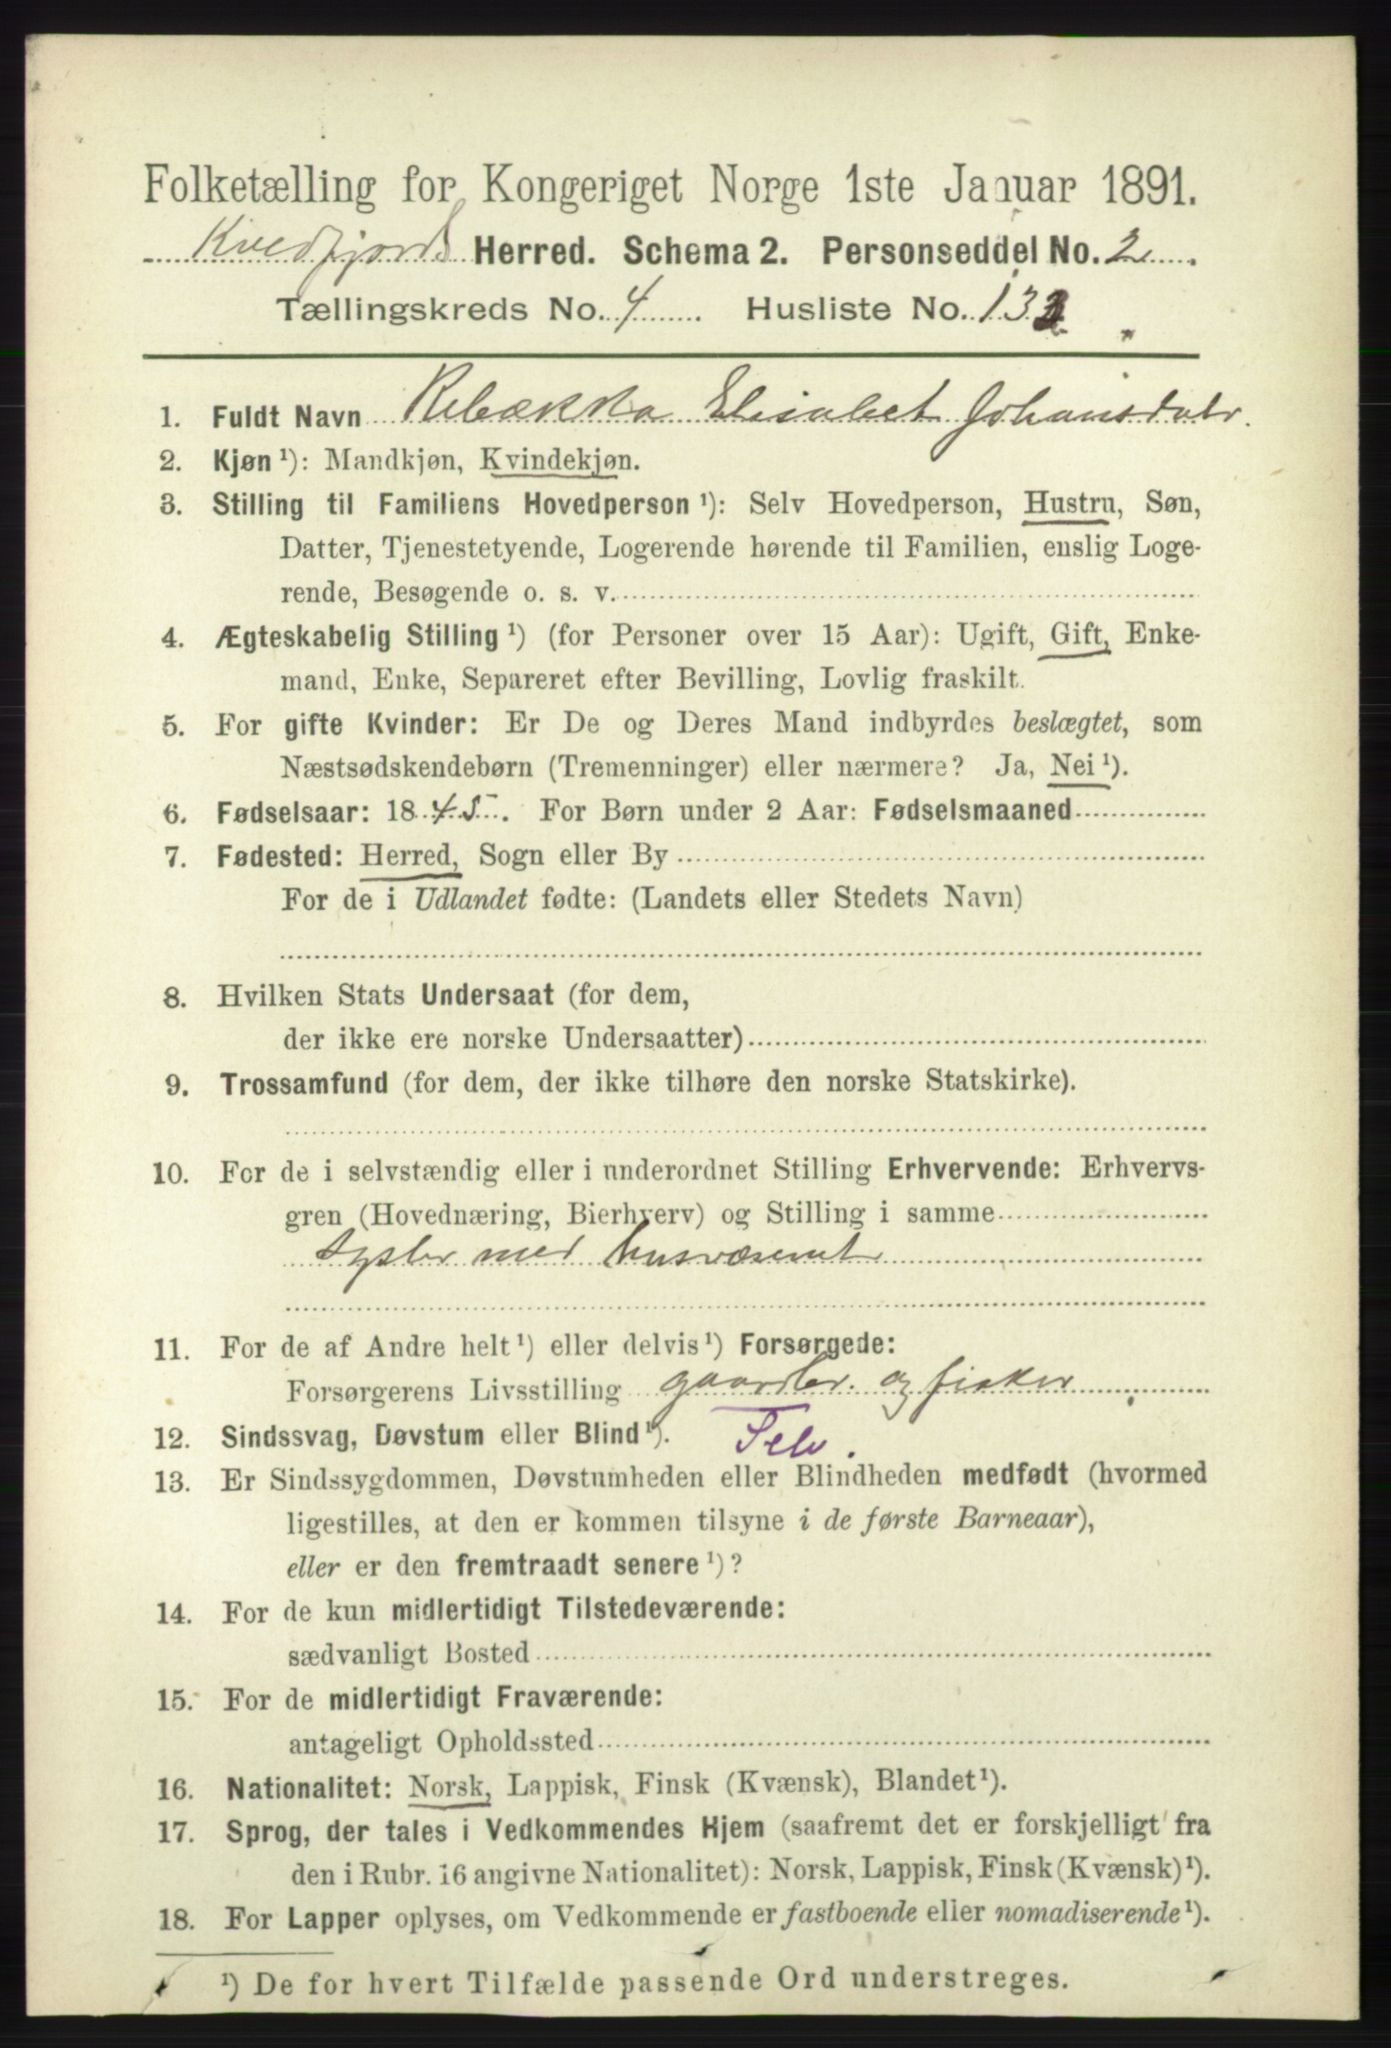 Folketælling for Kongeriget Norge 1ste Januar 1891.
Kvedfjord Herred. Schema 2. Personseddel No. 2
Tællingskreds No. 4 Husliste No. 132
1. Fuldt Navn Rebækka Elisabet Johansdatr.
2. Kjøn ¹): Mandkjøn, Kvindekjøn.
3. Stilling til Familiens Hovedperson ¹): Selv Hovedperson, Hustru, Søn,
Datter, Tjenestetyende, Logerende hørende til Familien, enslig Loge-
rende, Besøgende o. s. v.
4. Ægteskabelig Stilling ¹) (for Personer over 15 Aar): Ugift, Gift, Enke-
mand, Enke, Separeret efter Bevilling, Lovlig fraskilt.
5. For gifte Kvinder: Er De og Deres Mand indbyrdes beslægtet, som
Næstsødskendebørn (Tremenninger) eller nærmere? Ja, Nei ¹).
6. Fødselsaar: 1845. For Børn under 2 Aar: Fødselsmaaned
7. Fødested: Herred, Sogn eller By
For de i Udlandet fødte: (Landets eller Stedets Navn)
8. Hvilken Stats Undersaat (for dem,
der ikke ere norske Undersaatter)
9. Trossamfund (for dem, der ikke tilhøre den norske Statskirke).
10. For de i selvstændig eller i underordnet Stilling Erhvervende: Erhvervs-
gren (Hovednæring, Bierhverv) og Stilling i samme
Sysler med husvæsenet
11. For de af Andre helt ¹) eller delvis ¹) Forsørgede:
Forsørgerens Livsstilling gaardbr. og fisker
12. Sindssvag, Døvstum eller Blind ¹). Selv.
13. Er Sindssygdommen, Døvstumheden eller Blindheden medfødt (hvormed
ligestilles, at den er kommen tilsyne i de første Barneaar),
eller er den fremtraadt senere ¹)?
14. For de kun midlertidigt Tilstedeværende:
sædvanligt Bosted
15. For de midlertidigt Fraværende:
antageligt Opholdssted
16. Nationalitet: Norsk, Lappisk, Finsk (Kvænsk), Blandet ¹).
17. Sprog, der tales i Vedkommendes Hjem (saafremt det er forskjelligt fra
den i Rubr. 16 angivne Nationalitet): Norsk, Lappisk, Finsk (Kvænsk) ¹).
18. For Lapper oplyses, om Vedkommende er fastboende eller nomadiserende ¹).
¹) De for hvert Tilfælde passende Ord understreges.